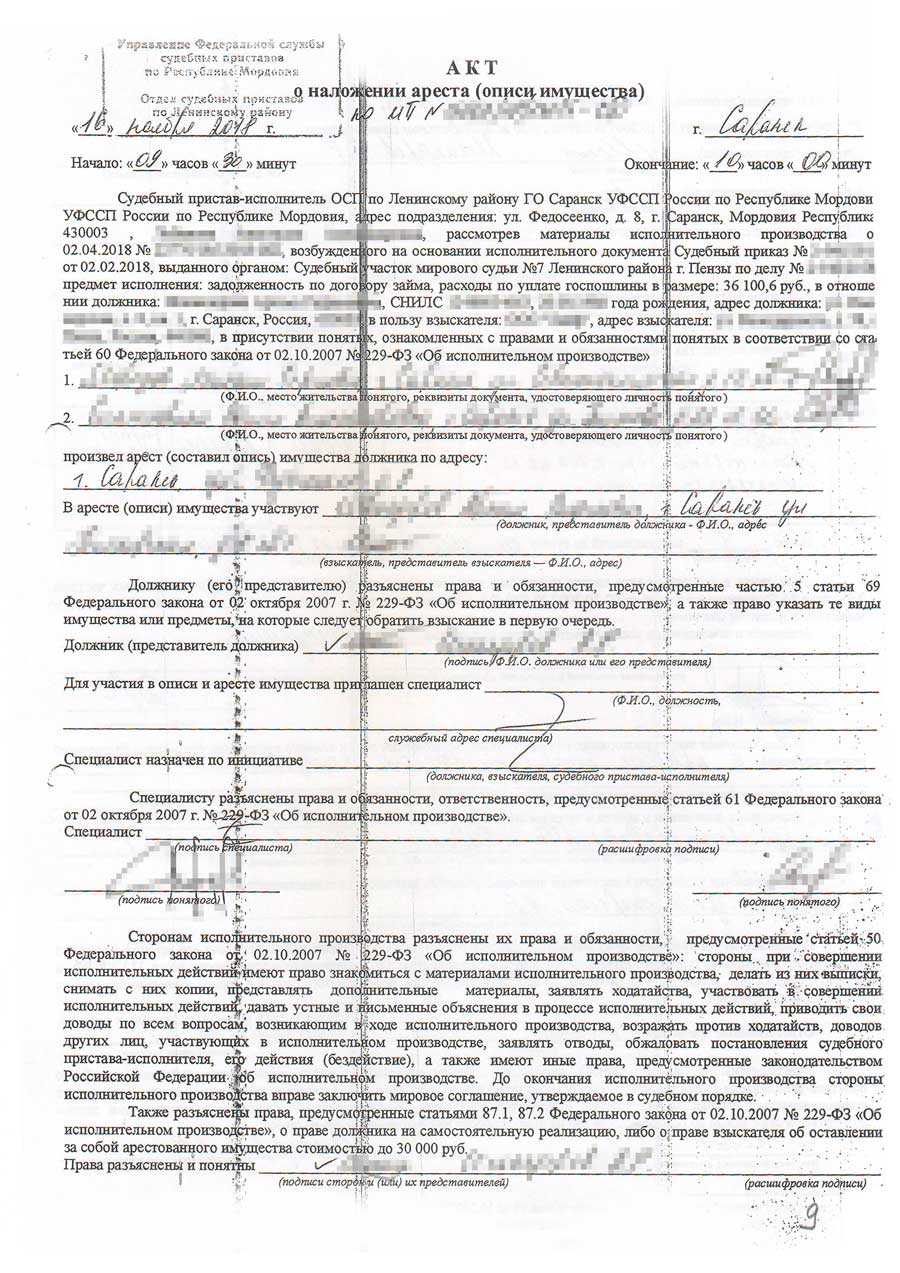 Управление Федеральной службы
судебных приставов
по Республике Мордовия
Отдел судебных приставов
по Ленинскому району
АКТ
о наложении ареста (описи имущества)
«16» ноября 2018 г. по ИП № г. Саранск
Начало: «09» часов «30» минут Окончание: «10» часов «00» минут
Судебный пристав-исполнитель ОСП по Ленинскому району ГО Саранск УФССП России по Республике Мордови
УФССП России по Республике Мордовия, адрес подразделения: ул. Федосеенко, д. 8, г. Саранск, Мордовия Республик
430003 , , рассмотрев материалы исполнительного производства о
02.04.2018 № , возбужденного на основании исполнительного документа Судебный приказ №
от 02.02.2018, выданного органом: Судебный участок мирового судьи №7 Ленинского района г. Пензы по делу №
предмет исполнения: задолженность по договору займа, расходы по уплате госпошлины в размере: 36 100,6 руб., в отноше
нии должника: , СНИЛС , года рождения, адрес должника:
г. Саранск, Россия, в пользу взыскателя: , адрес взыскателя:
, в присутствии понятых, ознакомленных с правами и обязанностями понятых в соответствии со ста
тьей 60 Федерального закона от 02.10.2007 № 229-ФЗ «Об исполнительном производстве»
1.
(Ф.И.О., место жительства понятого, реквизиты документа, удостоверяющего личность понятого)
2.
(Ф.И.О., место жительства понятого, реквизиты документа, удостоверяющего личность понятого)
произвел арест (составил опись) имущества должника по адресу:
г. Саранск,
В аресте (описи) имущества участвуют , г. Саранск ул
(должник, представитель должника - Ф.И.О., адрес
(взыскатель, представитель взыскателя — Ф.И.О., адрес)
Должнику (его представителю) разъяснены права и обязанности, предусмотренные частью 5 статьи 69
Федерального закона от 02 октября 2007 г. № 229-ФЗ «Об исполнительном производстве», а также право указать те виды
имущества или предметы, на которые следует обратить взыскание в первую очередь.
Должник (представитель должника)
(подпись, Ф.И.О. должника или его представителя)
Для участия в описи и аресте имущества приглашен специалист
(Ф.И.О., должность,
служебный адрес специалиста)
Специалист назначен по инициативе
(должника, взыскателя, судебного пристава-исполнителя)
Специалисту разъяснены права и обязанности, ответственность, предусмотренные статьей 61 Федерального закона
от 02 октября 2007 г. № 229-ФЗ «Об исполнительном производстве».
Специалист
(подпись специалиста) (расшифровка подписи)
(подпись понятого) (подпись понятого)
Сторонам исполнительного производства разъяснены их права и обязанности, предусмотренные статьей 50
Федерального закона от 02.10.2007 № 229-ФЗ «Об исполнительном производстве»: стороны при совершении
исполнительных действий имеют право знакомиться с материалами исполнительного производства, делать из них выписки,
снимать с них копии, представлять дополнительные материалы, заявлять ходатайства, участвовать в совершении
исполнительных действий, давать устные и письменные объяснения в процессе исполнительных действий, приводить свои
доводы по всем вопросам, возникающим в ходе исполнительного производства, возражать против ходатайств, доводов
других лиц, участвующих в исполнительном производстве, заявлять отводы, обжаловать постановления судебного
пристава-исполнителя, его действия (бездействие), а также имеют иные права, предусмотренные законодательством
Российской Федерации об исполнительном производстве. До окончания исполнительного производства стороны
исполнительного производства вправе заключить мировое соглашение, утверждаемое в судебном порядке.
Также разъяснены права, предусмотренные статьями 87.1, 87.2 Федерального закона от 02.10.2007 № 229-ФЗ «Об
исполнительном производстве», о праве должника на самостоятельную реализацию, либо о праве взыскателя об оставлении
за собой арестованного имущества стоимостью до 30 000 руб.
Права разъяснены и понятны
(подписи сторон и (или) их представителей) (расшифровка подписи)
9